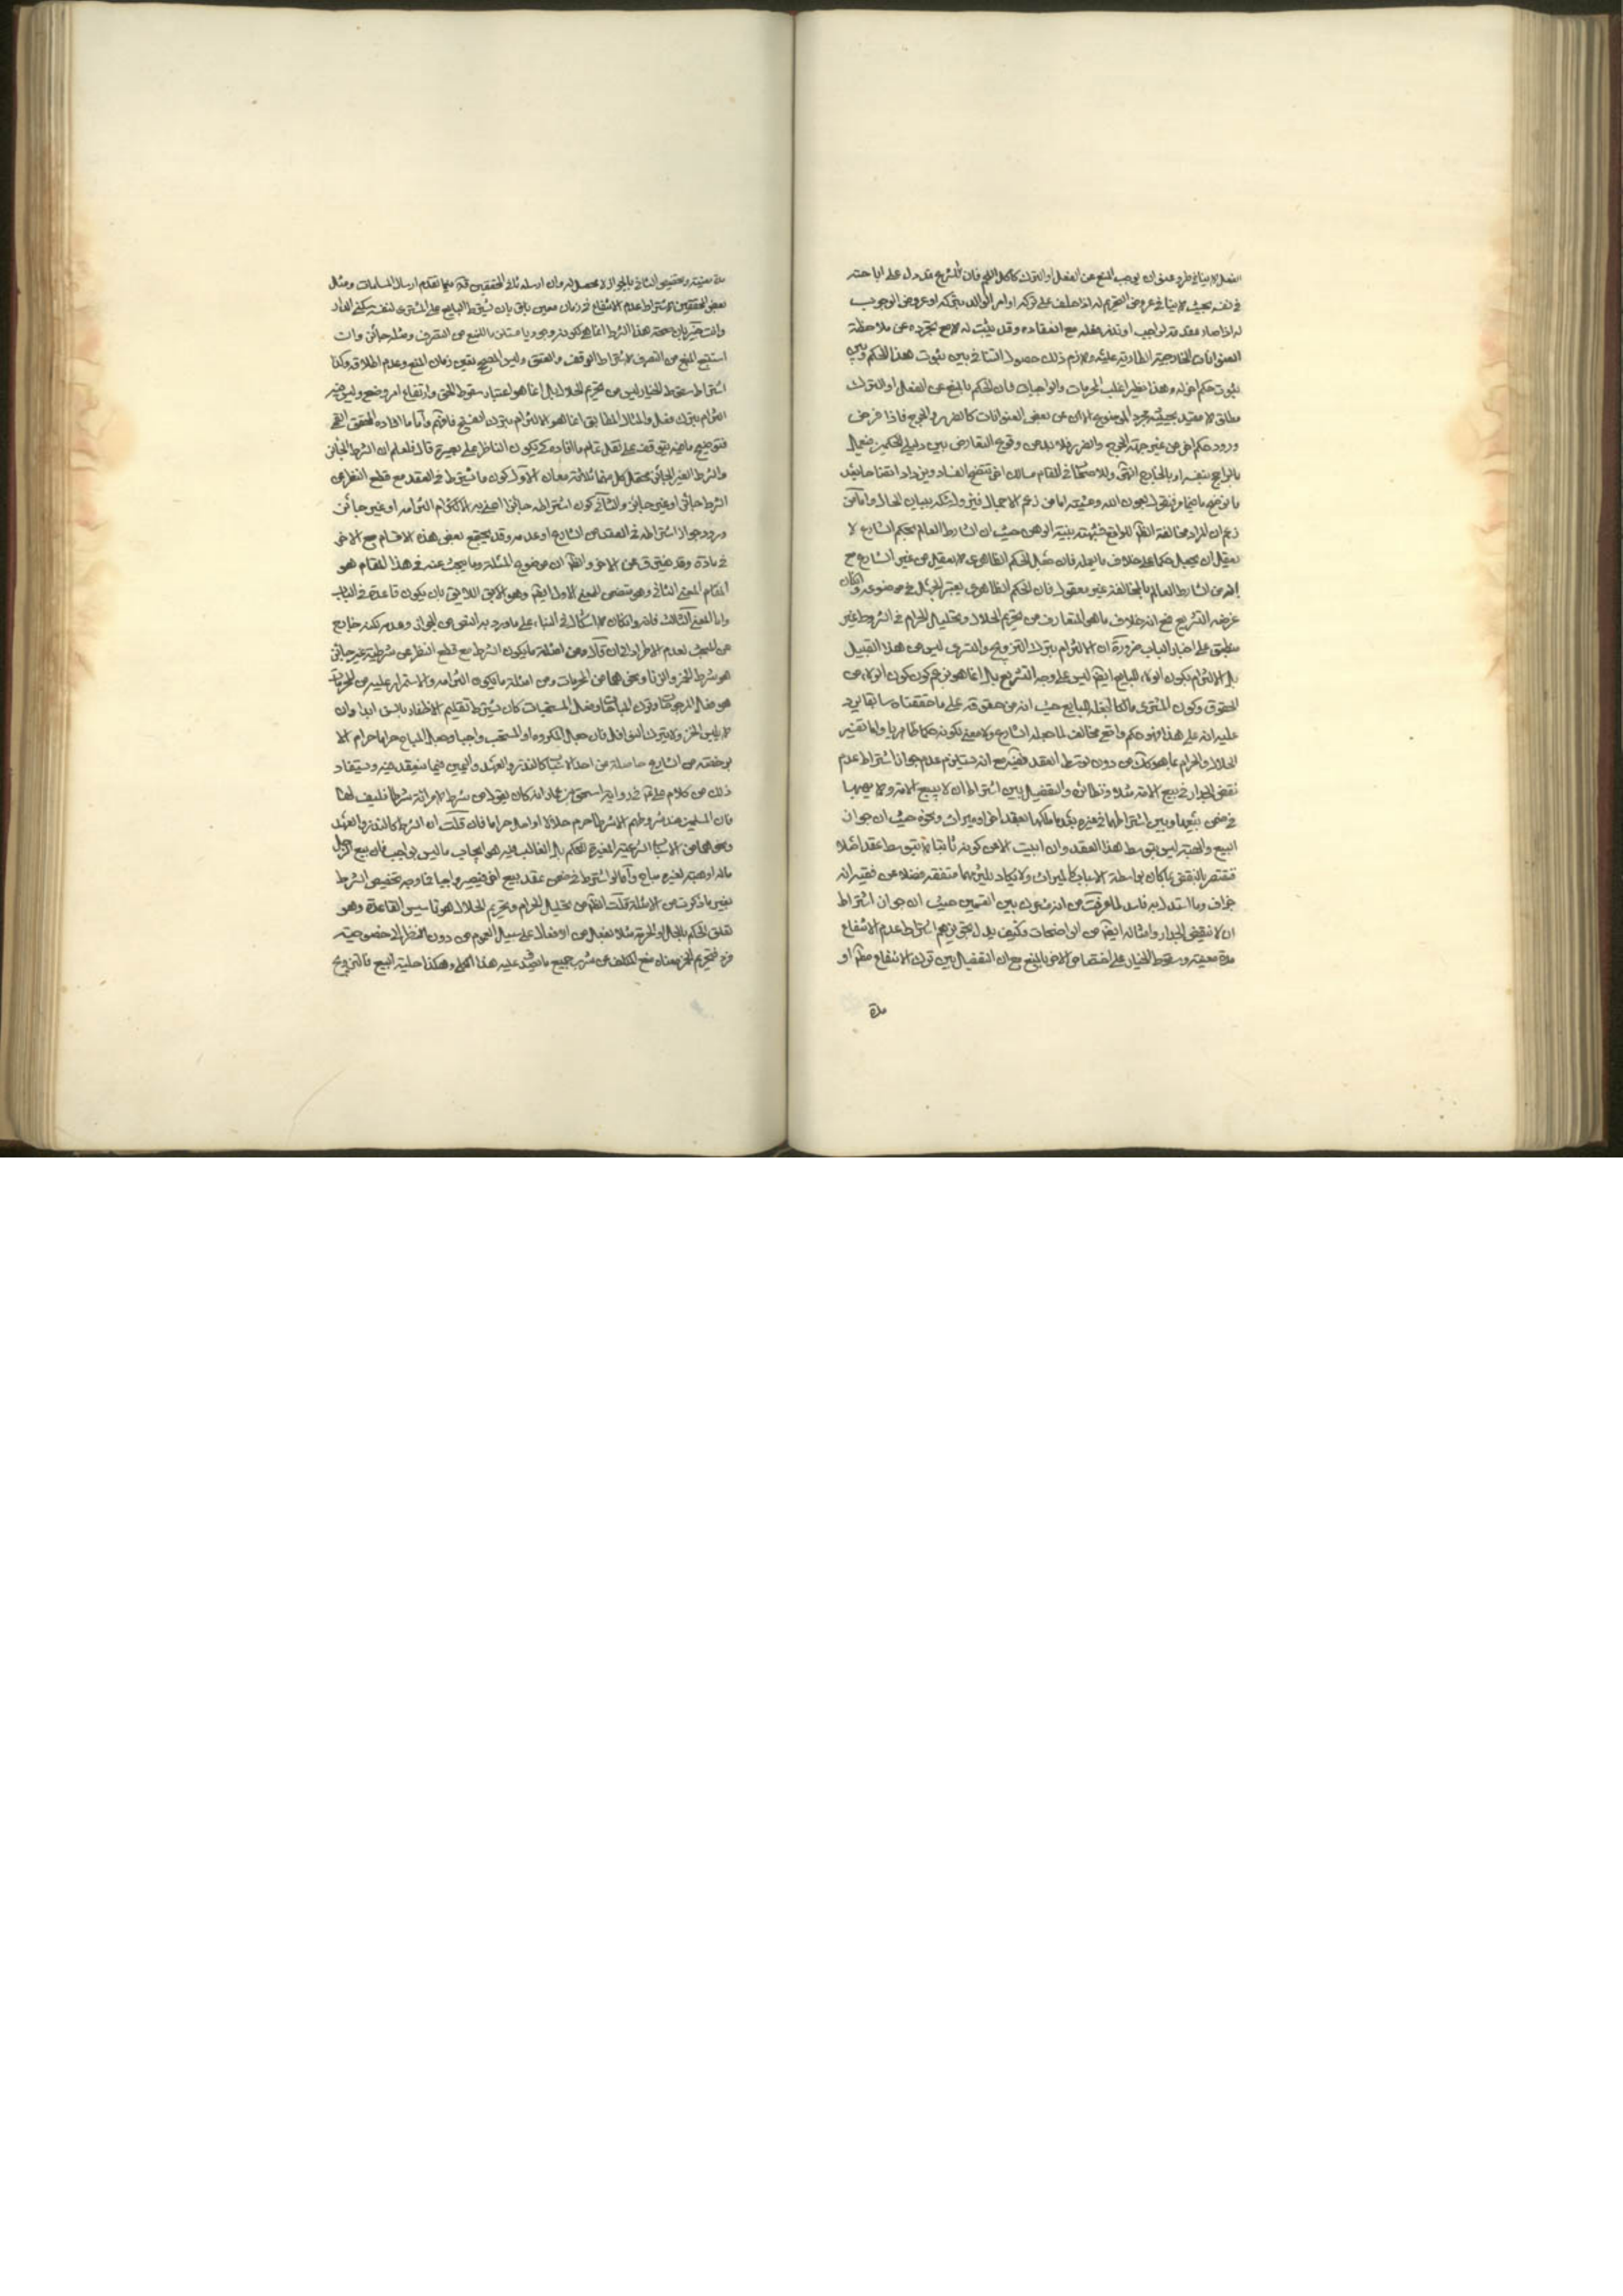 الفعل لا ينافي طرو عنوان يوجب المنع عن الفعل او الترك كاكل اللحم فان الشرع قد دل على اباحته
في نفسه بحيث لا ينافي عروض التحريم له اذا حلف على تركه او امر الوالد بتركه او عروض الوجوب
له اذا صار مقدمة لواجب او نذر فعله مع انعقاده وقد يثبت له لا مع تجرده عن ملاحظة
العنوانات الخارجية الطارية عليه ولازم ذلك حصول التنافي بين ثبوت هذا الحكم وبين
ثبوت حكم اخر له وهذا نظير اغلب المحرمات والواجبات فان الحكم بالمنع عن الفعل او الترك
مطلق لا مقيد بحيثية تجرد الموضوع الا عن بعض العنوانات كالضرر والحرج فاذا فرض
ورود حكم اخر من غير جهة الحرج والضرر فلا بد من وقوع التعارض بين دليلي الحكمين فيعمل
بالراجح بنفسه او بالخارج انتهى وللاصحاب في المقام مسالك اخر تتضح الفساد ويزداد اتقنا
ما نوضحه بعون الله ومشيته اما من زعم الاجمال واما من
زعم ان المراد مخالفة للواقع فشبهته بينة الوهن حيث ان الشارط العالم بحكم الشارع لا
يعقل ان يجعل حكما على خلاف ما يعلمه فان جعل الحكم الظاهري لا يعقل من غير الشارع مع
انه من الشارط العالم بالمخالفة غير معقول فان الحكم الظاهري يعتبر الجهل في موضوعه وان كان
غرضه التشريع فمع انه خلاف ما هو المتعارف من تحريم الحلال وتحليل الحرام في الشروط غير
منطبق على اخبار الباب ضرورة ان الالتزام بترك التزويج والتسري ليس من هذا القبيل
بل الالتزام بكون الولاء للبايع ايضا ليس على وجه التشريع بل انما هو بزعم كون الولاء من
الحقوق وكون المشتري مالكا لجعله للبايع حيث انه من حقوقه على ما حققناه سابقا نرد
عليه انه على هذا فهو حكم واقعي مخالف لما جعله الشارع ولا معنى لكونه حكما ظاهريا واما تفسير
الحلال والحرام بما هو كك من دون توسط العقد ففيه مع انه يستلزم عدم جواز اشتراط عدم
نقض الجدار في بيع الامة مثلا ونظائره والتفصيل بين اشتراط ان لا يبيع الامة ولا يهبها
في ضمن بيعها وبين اشتراطها في غيره بعد ما ملكها بعقد اخر او ميراث ونحوه حيث ان جواز
البيع والهبة ليس بتوسط هذا العقد وان ابيت الا عن كونه ثابتا بتوسط عقد اصلا
فنقتصر بالنقض بما كان بواسطة الاسباب كالميراث ولا يكاد يلتزم بهما متفقه فضلا عن فقيه انه
جزاف وما استدل به فاسد لما عرفت من انه مشترك بين القسمين حيث ان جواز اشتراط
ان لا ينقض الجدار وامثاله ايضا من الواضحات وكيف يدل تجويزهم اشتراط عدم الانتفاع
مدة معينة وسقوط الخيار على اختصاص الاخر بالمنع مع ان التفصيل بين ترك الانتفاع مطلقا او
مدة
مدة معينة وتخصيص الثاني بالجواز لا محصل له وان ارسله ثاني المحققين قده فيما تقدم ارسال المسلمات ومثل
بعض المحققين لاشتراط عدم الانتفاع في زمان معين باق بان يشترط البايع على المشتري لنفسه سكنى الدار
وانت خبير بان صحة هذا الشرط انما هي لكونه وجوديا مثلا بالمنع من التصرف ومثله جائز وان
استتبع المنع من التصرف لاشتراط الوقف والعتق وليس المصحح تعين زمان المنع وعدم اطلاقه وكذا
اشتراط سقوط الخيار ليس من تحريم الحلال بل انما هو لاعتبار سقوط الحق وارتفاع امر وضعي وليس فيه
التزام بترك فعل والمثال المطابق انما هو الالتزام بترك الفسخ فافهم واما ما افاده المحقق القمي
فتوضيح ما فيه يتوقف على نقل تمام ما افاده كي يكون الناظر على بصيرة قال فلعلم ان الشرط الجائز
والشرط الغير الجائز محتمل كل منهما ثلاثة معان الاول كون ما يشترط في العقد مع قطع النظر عن
الشرط جائزا او غير جائز والثاني كون اشتراطه جائزا اعني به الالتزام التزامه او غير جائز
ورود جواز اشتراطه في العقد من الشارع او عدمه وقد يجتمع بعض هذه الاقسام مع الاخر
في مادة وقد يفترق عن الاخر والظ ان موضوع المسئلة وما يبحث عنه في هذا المقام هو
المقام المعنى الثاني وهو يتضمن المعنى الاول ايضا وهو الانسب اللايق بان يكون قاعدة في الباب
واما المعنى الثالث فانه وان كان لا اشكال في البناء على ما ورد به النص من الجواز وعدمه لكنه خارج
عن المبحث لعدم الاطراد ومن امثلة ما يكون الشرط مع قطع النظر عن شرطيته غير جائز
هو شرب الخمر والزنا ونحوهما من المحرمات ومن امثلة ما يكون التزامه والاستمرار عليه من المحرمات
هو فعل المرجوحات وترك المباحات وفعل المستحبات كان يشترط تقليم الاظفار بالسن ابدا وان
لا يلبس الخز ولا يترك النوافل فان جعل المكروه او المستحب واجبا وجعل المباح حراما حرام الا
برخصة من الشارع حاصلة من احد الاسباب كالنذر والعهد واليمين فيما ينعقد فيه ويستفاد
ذلك من كلام علي ع في رواية اسحق بن عمار انه كان يقول من شرط لامرأته شرطا فليف لها
فان المسلمين عند شروطهم الا شرطا حرم حلالا او احل حراما فان قلت ان الشرط كالنذر والعهد
ونحوهما من الاسباب الشرعية المغيرة للحكم بل الغالب فيه هو ايجاب ما ليس بواجب فان بيع الرجل
ماله او هبته لغيره مباح واما لو اشترط في ضمن عقد بيع اخر فيصير واجبا فما وجه تخصيص الشرط
بغير ما ذكرت من الامثلة قلت الظ من تحليل الحرام وتحريم الحلال هو تاسيس القاعدة وهو
تعلق الحكم بالحل او الحرمة مثلا بفعل من الافعال على سبيل العموم من دون النظر الى خصوصية
فرد فتحريم الخمر معناه منع المكلف عن شرب جميع ما يصدق عليه هذا الكلي وهكذا حلية البيع فالتزويج